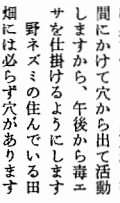 間にかけて穴から出て活動
しますから、午後から毒エ
サを仕掛けるようにします
野ネズミの住んでいる田
畑には必らず穴があります